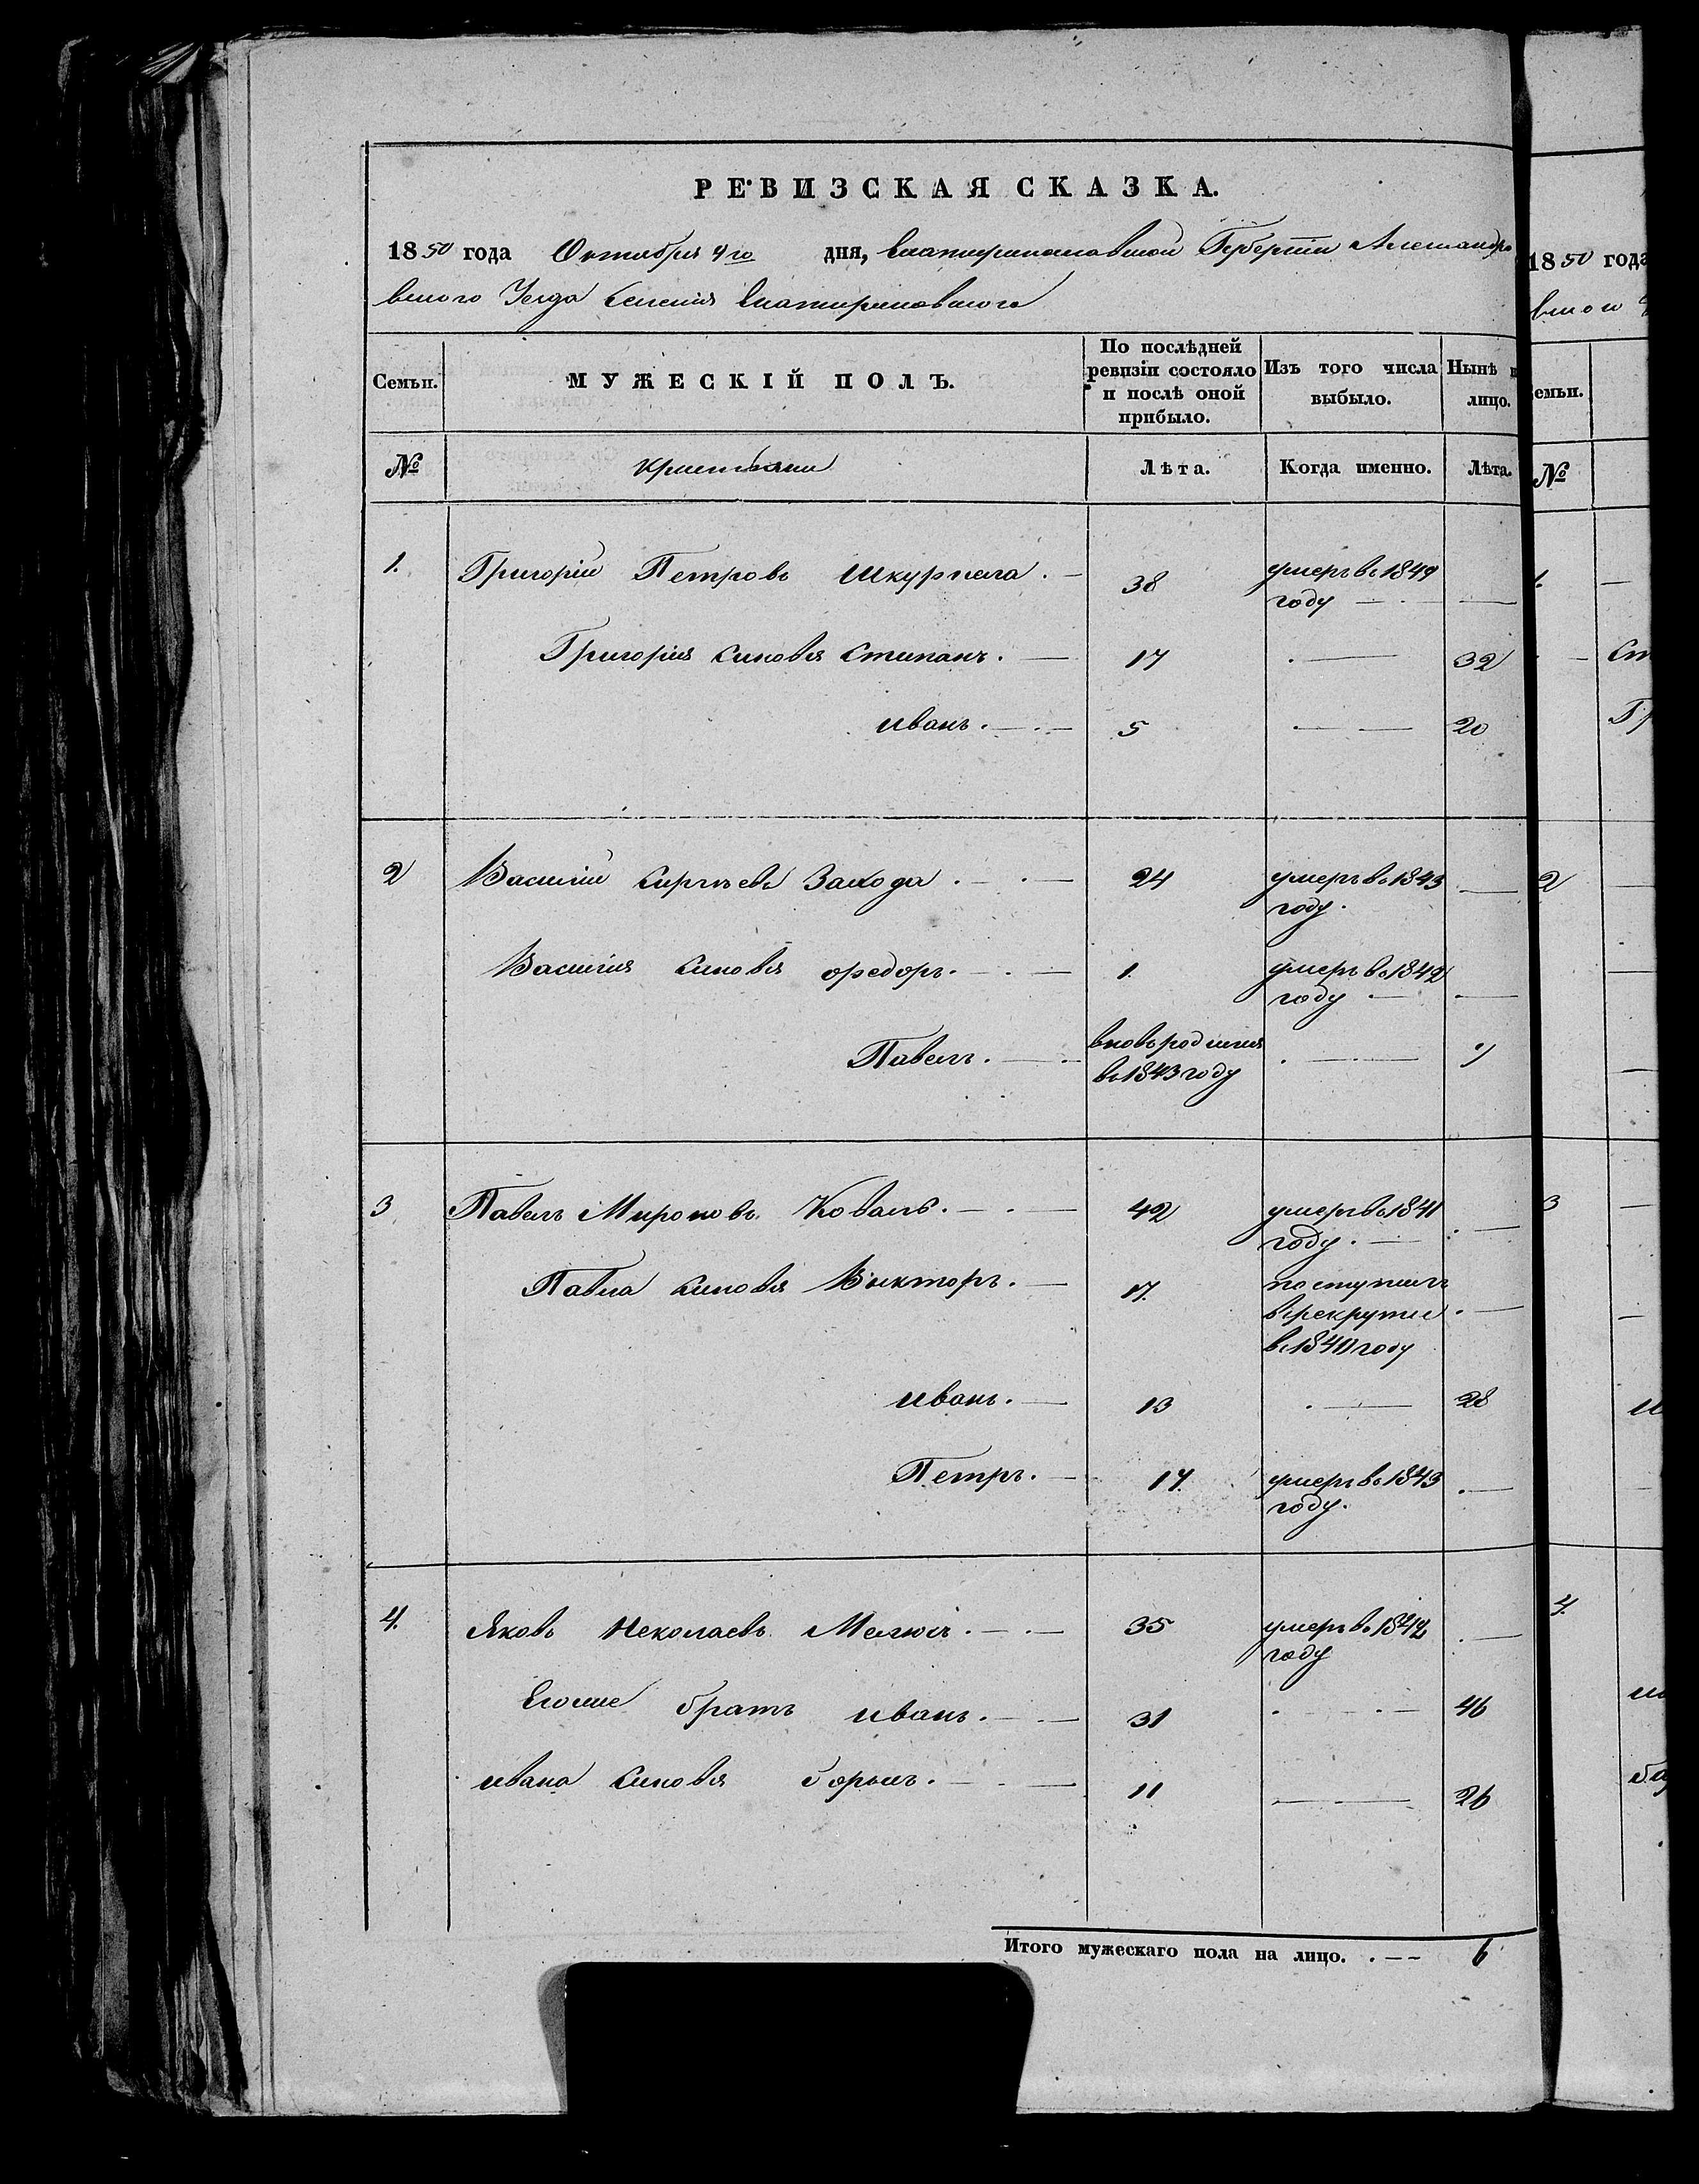 РЕВИЗСКАЯ СКАЗКА.
1850 года Октября 4го дня, Екатеринославской Губернии Александро
вского Уезда Селения Екатериновского
Семьи. МУЖЕСКІЙ ПОЛЪ. По послѣдней ревизіи состояло и послѣ оной прибыло. Изъ того числа выбыло. Нынѣ лицо.
№ Крестьяни Лѣта. Когда именно. Лѣта.
1. Григорий Петровъ Шкурпела. 38 умеръ въ 1849
году
Григория синовья Стипанъ. 17 32
иванъ. 5 20
2 Василий Сиргѣевъ Захода 24 умеръ въ 1843
году.
Василия синовья Федоръ. 1. умеръ въ 1842
году
Павелъ. вновь родился 7
въ 1843 году
3 Павелъ Мироновъ Коваль. 42 умеръ въ 1841
году.
Павла синовья Викторъ. 17. поступилъ
в рекруты
въ 1840 году
иванъ. 13 28
Петръ. 17. умеръ въ 1843
году.
4. Яковъ Неколаевъ 35 умеръ въ 1842
году
Егоже братъ иванъ. 31 46
ивана синовья борысъ. 11 26
Итого мужескаго пола на лицо. 6
1850 года
вског
емьи.
№
1.
Ст
Гр
2
3
4.